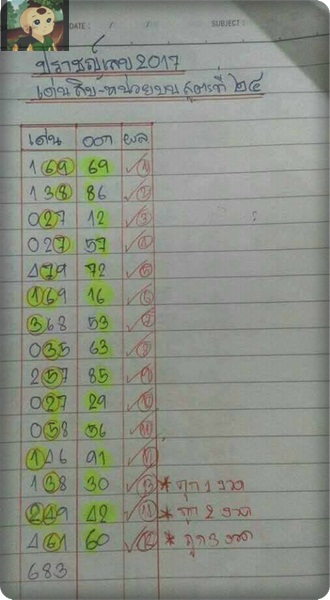 DATE : / / SUBJECT :
ปราชญ์เลข 2017
เด่นสิบ-หน่วยบน สูตรที่ ๒๔
เด่น ออก ผล
169 69 ✓①
138 86 ✓②
027 12 ✓③
027 57 ✓④
479 72 ✓⑤
169 16 ✓⑥
368 53 ✓⑦
035 63 ✓⑧
257 85 ✓⑨
027 29 ✓⑩
058 56 ✓
146 91 ✓
138 30 ✓⑬ * ถูก 1 งวด
249 42 ✓ * ถูก 2 งวด
461 60 ✓ * ถูก 3 งวด
683